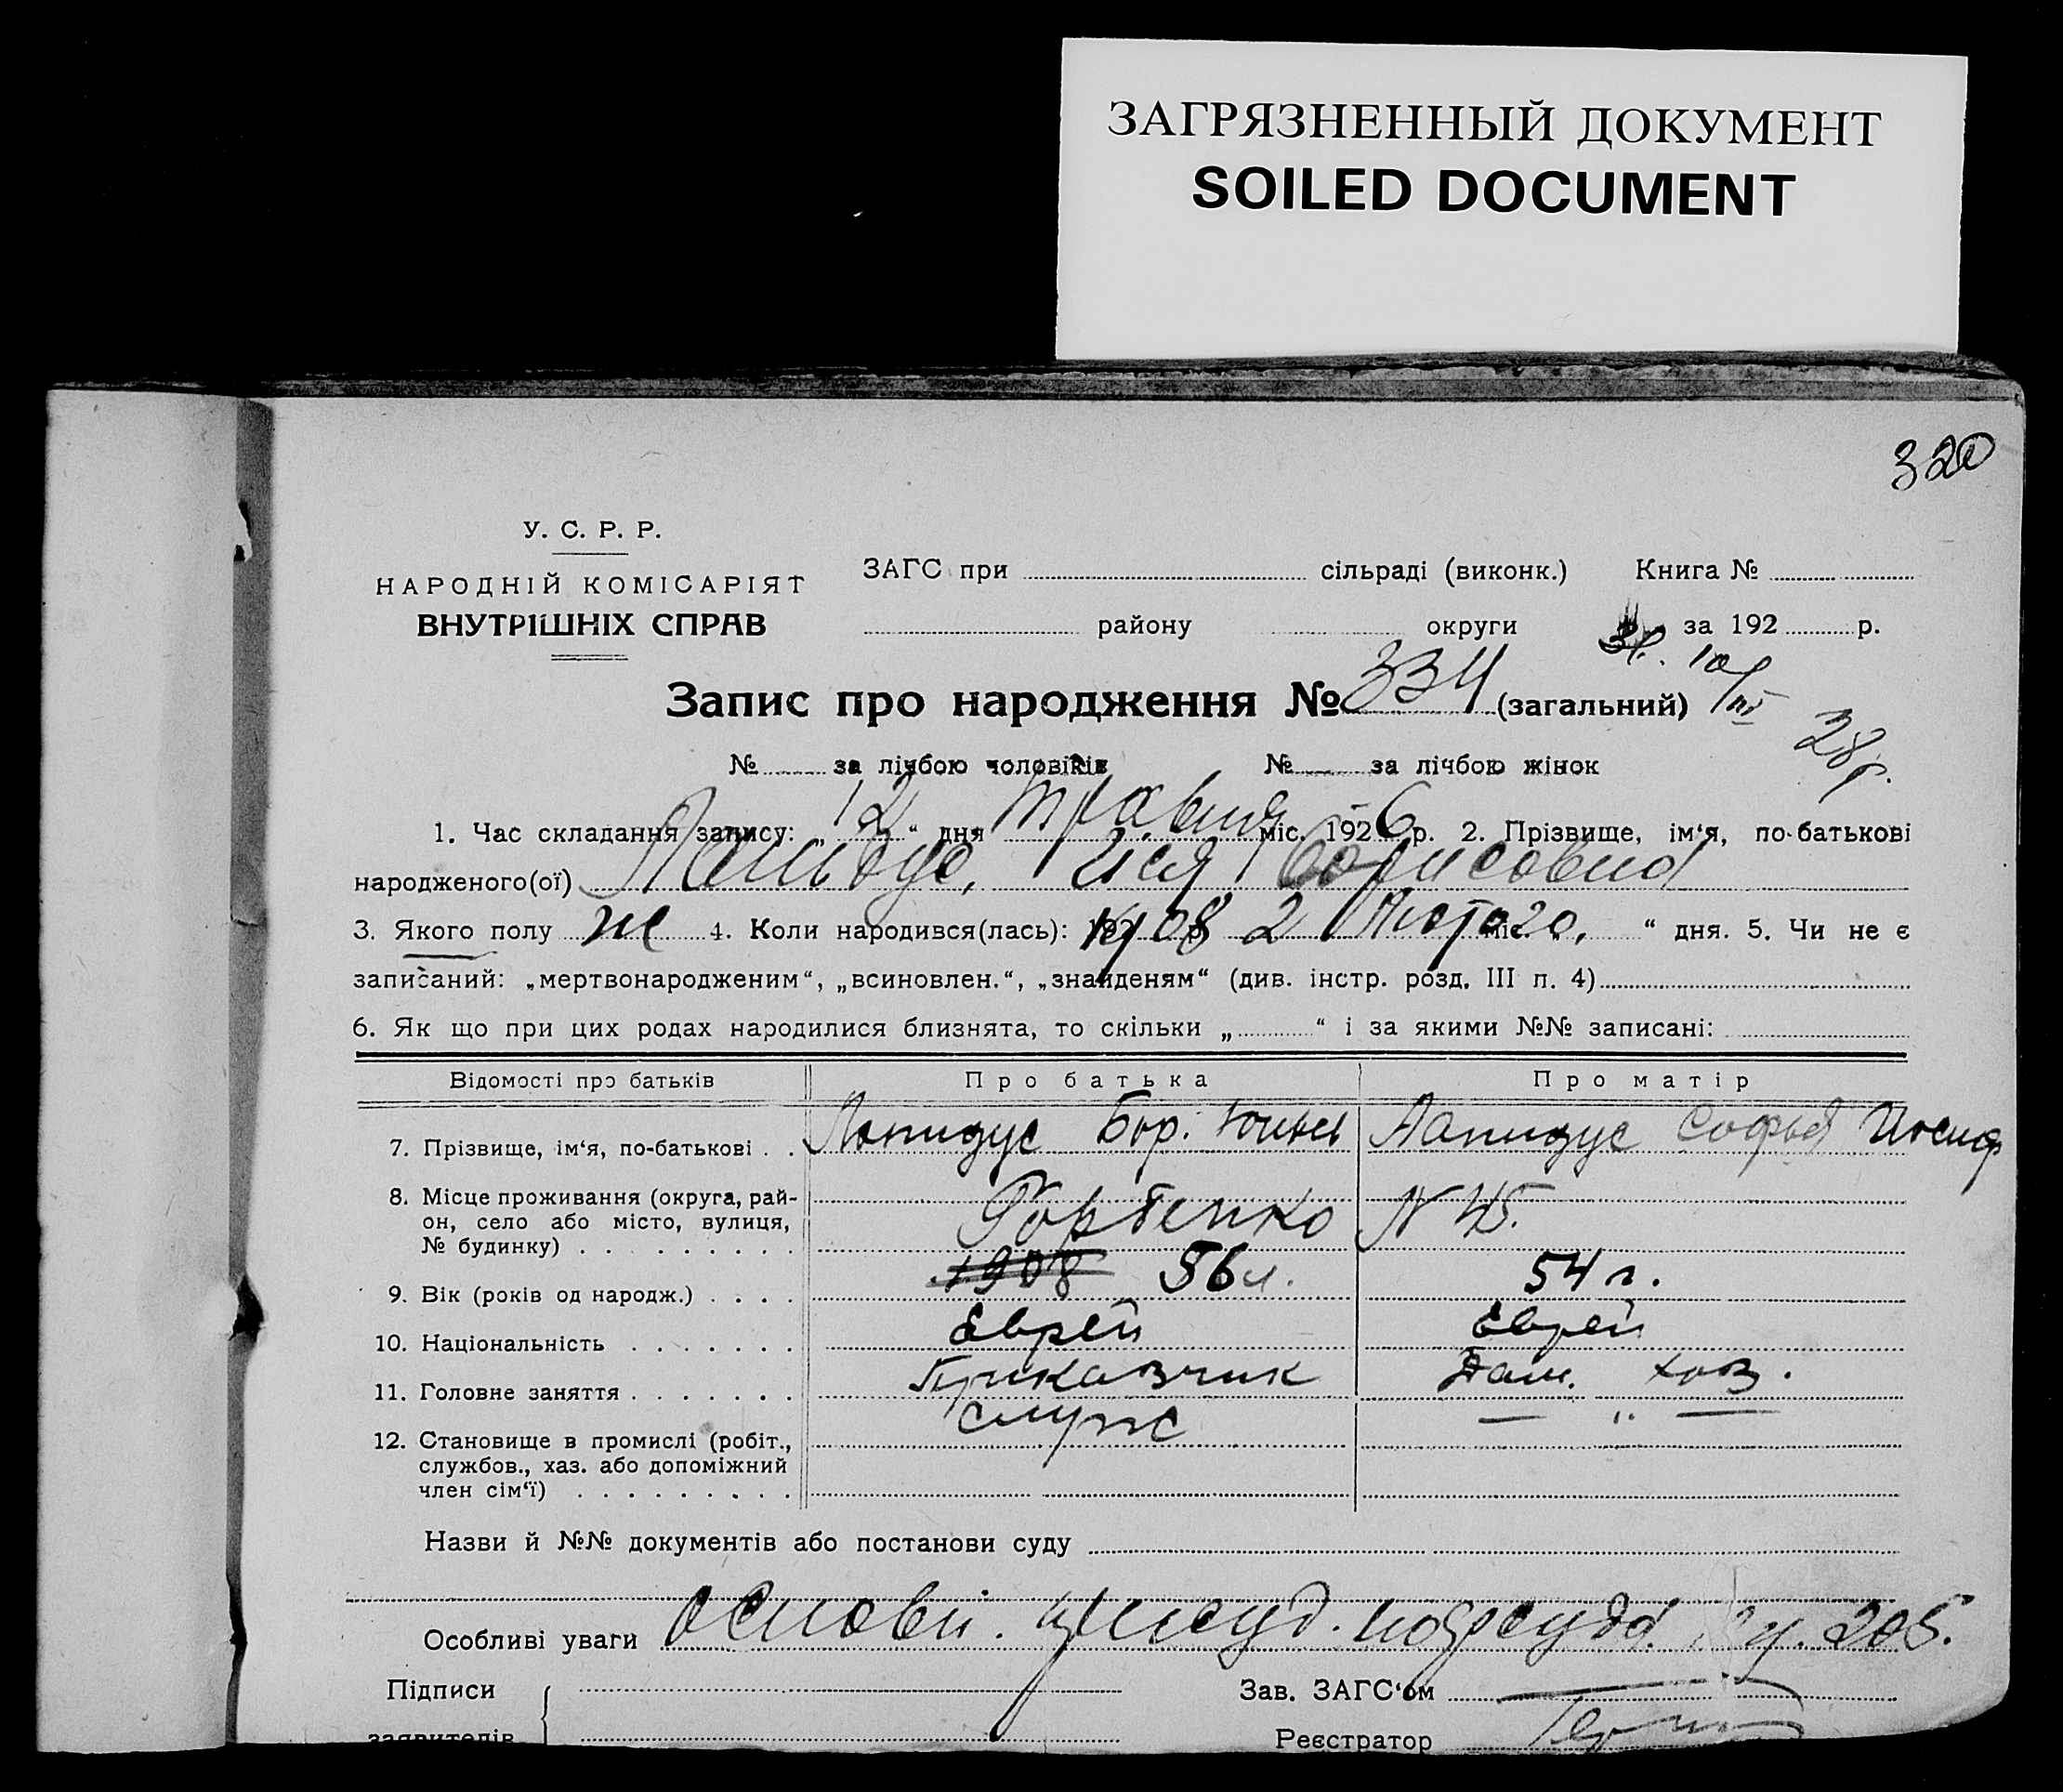 ЗАГРЯЗНЕННЫЙ ДОКУМЕНТ
SOILED DOCUMENT
320
У. С. Р. Р.
НАРОДНІЙ КОМІСАРІЯТ
ВНУТРІШНІХ СПРАВ
ЗАГС при сільраді (виконк.) Книга №
району округи за 192 р.
Запис про народження № 334 (загальний)
28 р.
№ за лічбою чоловіків № за лічбою жінок
1. Час складання запису: „ 12 “ дня травня міс. 1926 р. 2. Прізвище, ім‘я, по-батькові
народженого(ої) Борисовна
3. Якого полу ж 4. Коли народився(лась): 1908 2 Лютого, міс. “ дня. 5. Чи не є
записаний: „мертвонародженим“, „всиновлен.“, „знайденям“ (див. інстр. розд. III п. 4)
6. Як що при цих родах народилися близнята, то скільки „ “ і за якими №№ записані:
Відомості про батьків Про батька Про матір
7. Прізвище, ім‘я, по-батькові . . Лапидус Бор. Лапидус Софья Иосиф
8. Місце проживання (округа, рай-
он, село або місто, вулиця,
№ будинку) . . . . . . . . . N 45.
9. Вік (років од народж.) . . . . 1908 56 54 г.
10. Національність . . . . . . . Еврей Еврей
11. Головне заняття . . . . . . . Приказчик Дом. хоз.
12. Становище в промислі (робіт.,
службов., хаз. або допоміжний
член сім‘ї) . . . . . . . . . служ — „ —
Назви й №№ документів або постанови суду
Особливі уваги нарсуда 205.
Підписи
заявителів
Зав. ЗАГС‘ом
Реєстратор